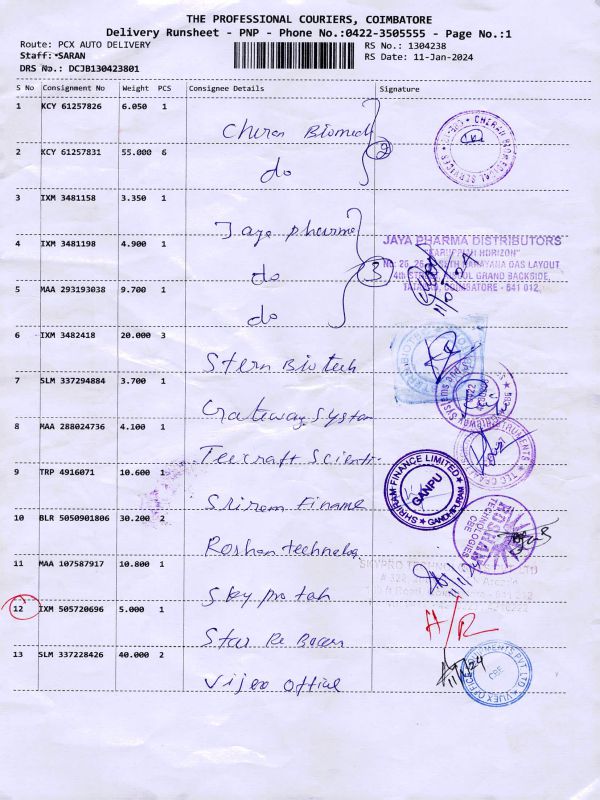 THE PROFESSIONAL COURIERS, COIMBATORE
Delivery Runsheet - PNP - Phone No.:0422-3505555 - Page No.:1
Route: PCX AUTO DELIVERY RS No.: 1304238
Staff: SARAN RS Date: 11-Jan-2024
DRS No.: DCJB130423801
S No Consignment No Weight PCS Consignee Details Signature
1 KCY 61257826 6.050 1
Cheran Biomed
2 KCY 61257831 55.000 6
do
2
CHERAN BIOMEDICAL SERVICES
3 IXM 3481158 3.350 1
Jaya pharma
4 IXM 3481198 4.900 1
do
3
JAYA PHARMA DISTRIBUTORS
HORIZON"
LAYOUT
GRAND BACKSIDE,
COIMBATORE - 641 012.
11/01/24
5 MAA 293193038 9.700 1
do
6 IXM 3482418 20.000 3
Stern Biotech
7 SLM 337294884 3.700 1
Gateway System
8 MAA 288024736 4.100 1
Telecraft Scienti
9 TRP 4916071 10.600 1
Sriram Finance
SHRIRAM FINANCE LIMITED
GANPU
GANDHIPURAM
10 BLR 5050901806 30.200 2
Roshan technolog
ROSHAN
TECHNOLOGIES
CBE
11 MAA 107587917 10.800 1
Sky pro tah
SKYPRO
12 IXM 505720696 5.000 1
A/R
13 SLM 337228426 40.000 2
Vijex office
CBE